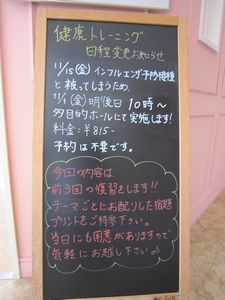 健康トレーニング
日程変更お知らせ
11/15(金)インフルエンザ予防接種
と被ってしまうため、
11/1(金)明後日 10時〜
多目的ホールにて実施します!
料金:¥815-
予約は不要です。
今回の内容は
前3回の復習をします!!
テーマごとにお配りした宿題
プリントをご持参下さい。
当日にも用意がありますので
気軽にお越し下さい♪